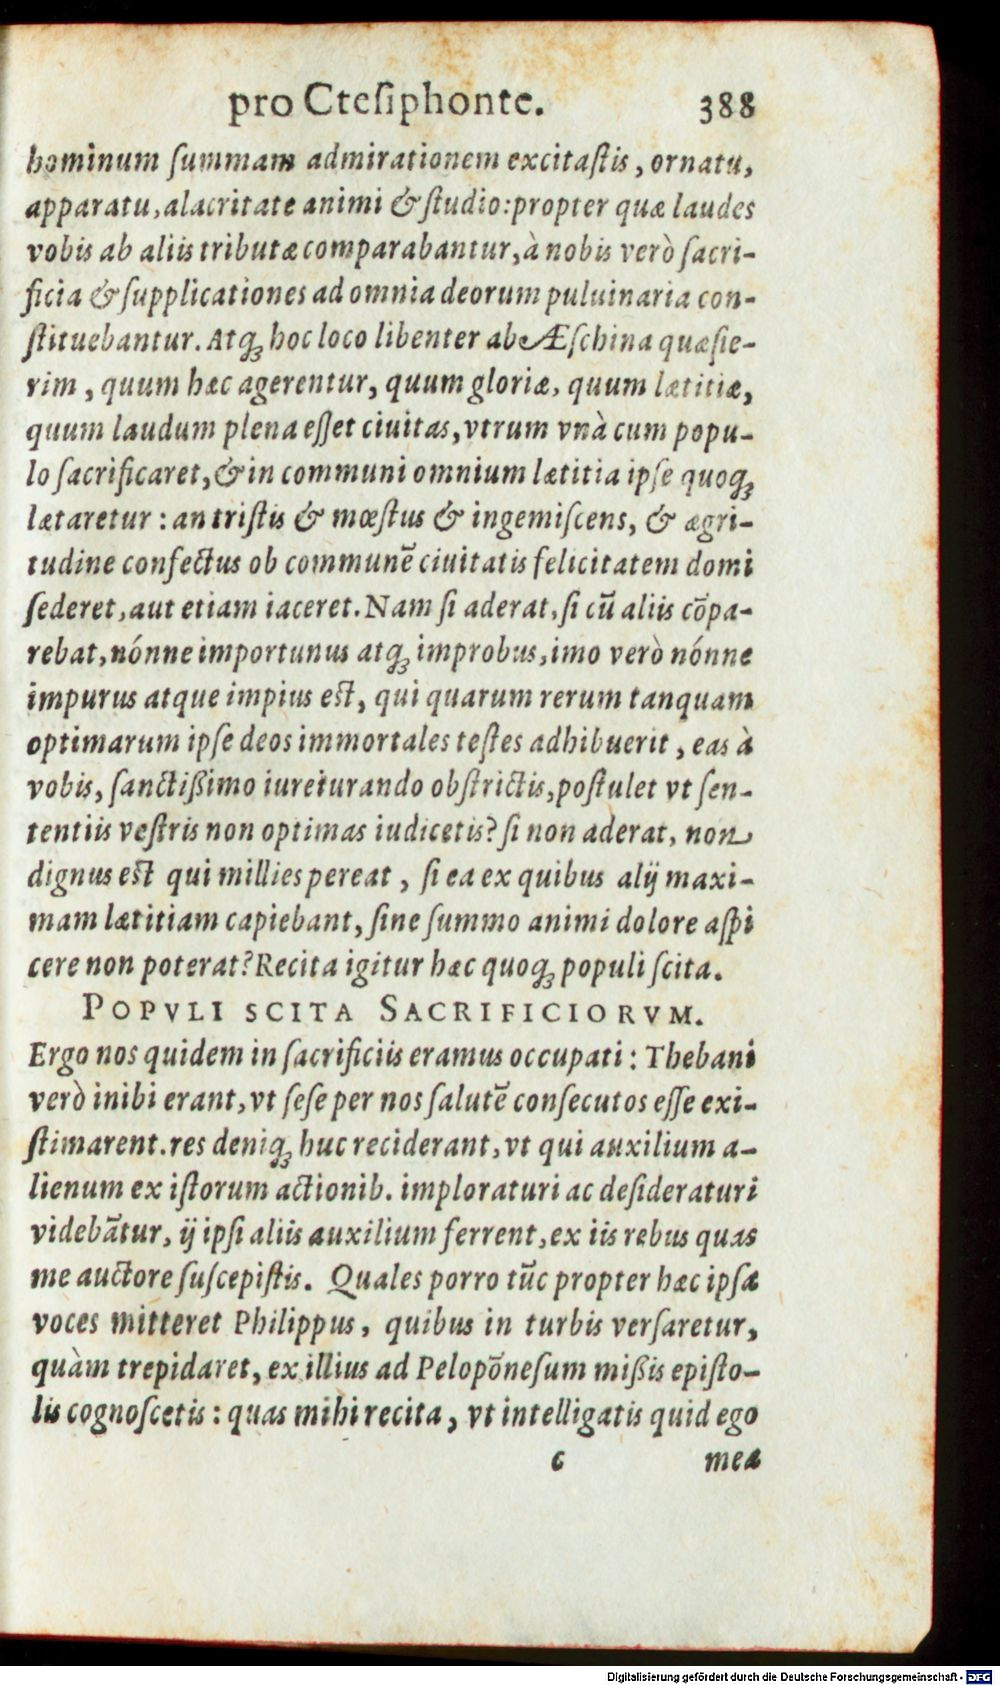 pro Cteſiphonte. 388
hominum ſummam admirationem excitaſtis, ornatu,
apparatu, alacritate animi & ſtudio: propter quæ laudes
vobis ab aliis tributæ comparabantur, à nobis verò ſacri-
ficia & ſupplicationes ad omnia deorum puluinaria con-
ſtituebantur. Atq; hoc loco libenter ab Æſchina quæſie-
rim, quum hæc agerentur, quum gloriæ, quum lætitiæ,
quum laudum plena eſſet ciuitas, vtrum vnà cum popu-
lo ſacrificaret, & in communi omnium lætitia ipſe quoq;
lætaretur: an triſtis & mœſtus & ingemiſcens, & ægri-
tudine confectus ob communẽ ciuitatis felicitatem domi
ſederet, aut etiam iaceret. Nam ſi aderat, ſi cũ aliis cõpa-
rebat, nónne importunus atq; improbus, imo verò nónne
impurus atque impius eſt, qui quarum rerum tanquam
optimarum ipſe deos immortales teſtes adhibuerit, eas à
vobis, ſanctißimo iureiurando obſtrictis, poſtulet vt ſen-
tentiis veſtris non optimas iudicetis? ſi non aderat, non
dignus eſt qui millies pereat, ſi ea ex quibus alij maxi-
mam lætitiam capiebant, ſine ſummo animi dolore aſpi
cere non poterat? Recita igitur hæc quoq; populi ſcita.
POPVLI SCITA SACRIFICIORVM.
Ergo nos quidem in ſacrificiis eramus occupati: Thebani
verò inibi erant, vt ſeſe per nos ſalutẽ conſecutos eſſe exi-
ſtimarent. res deniq; huc reciderant, vt qui auxilium a-
lienum ex iſtorum actionib. imploraturi ac deſideraturi
videbãtur, ij ipſi aliis auxilium ferrent, ex iis rebus quas
me auctore ſuſcepiſtis. Quales porro tũc propter hæc ipſa
voces mitteret Philippus, quibus in turbis verſaretur,
quàm trepidaret, ex illius ad Pelopõneſum mißis epiſto-
lis cognoſcetis: quas mihi recita, vt intelligatis quid ego
c mea
Digitalisierung gefördert durch die Deutsche Forschungsgemeinschaft - DFG